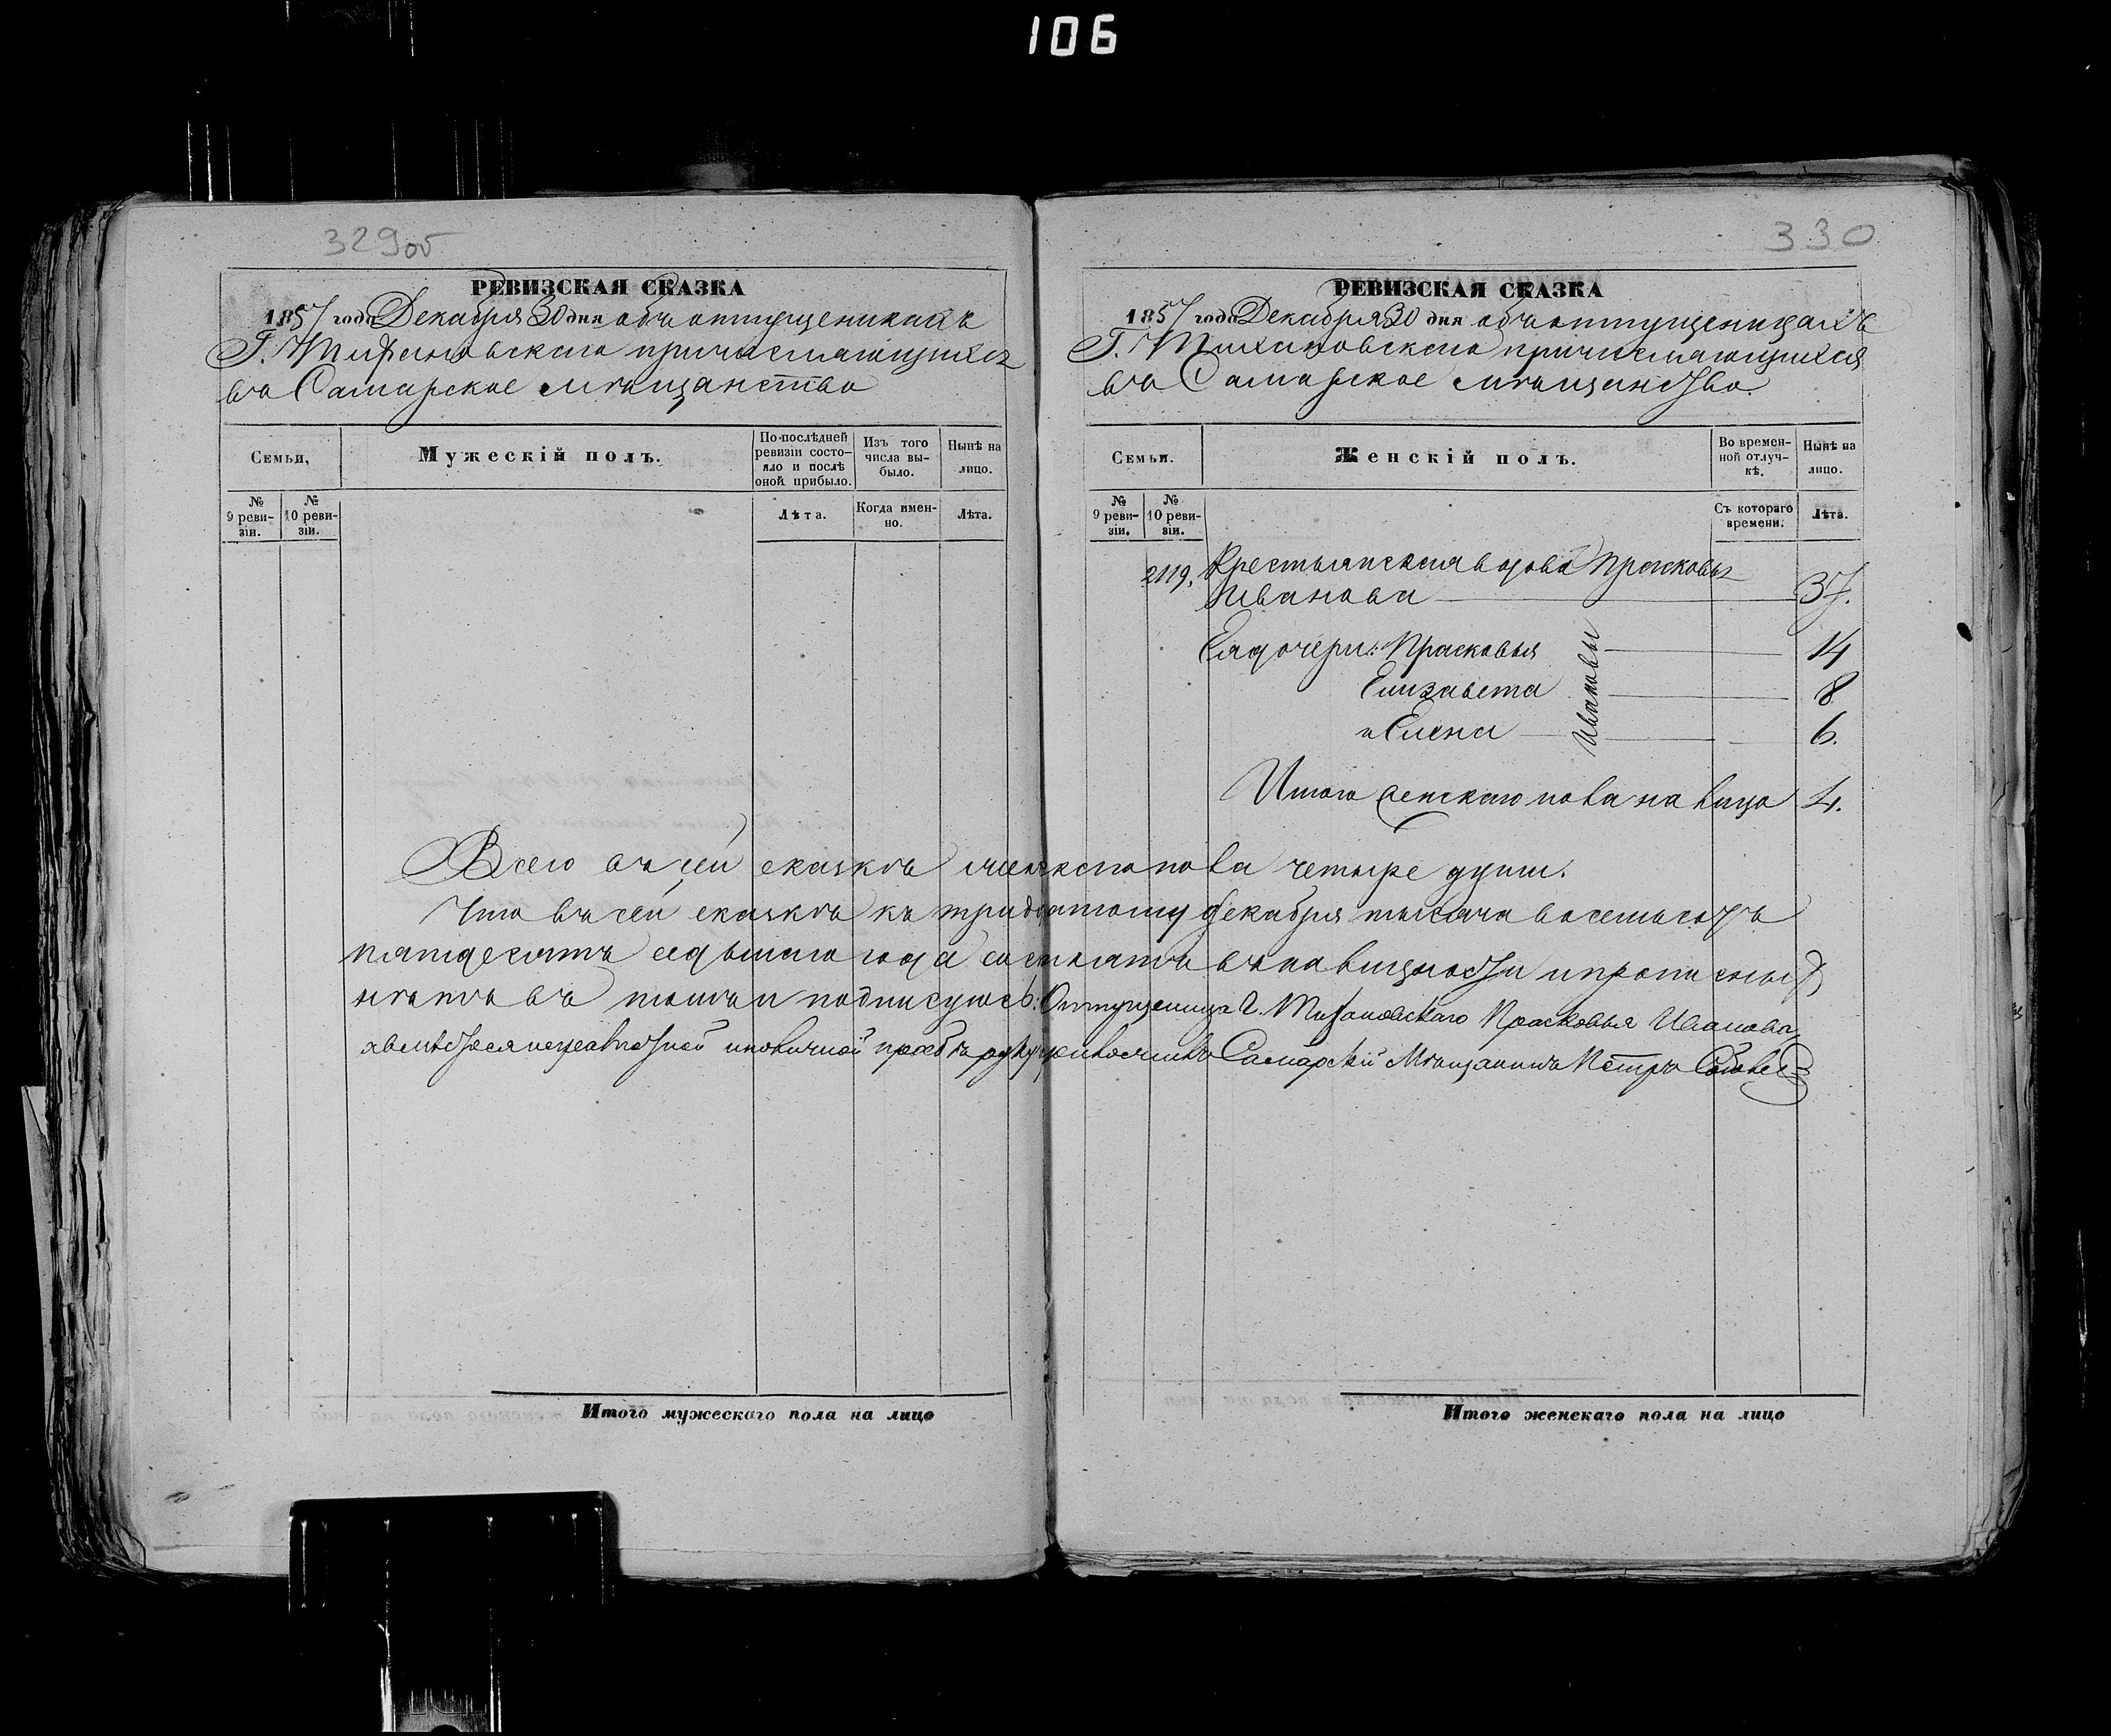 106
329об
РЕВИЗСКАЯ СКАЗКА
1857 года Декабря 30 дня объ отпущеникахъ
Г. Тифановскаго причисляющихся
въ Самарское мѣщанство
Семьи,
Мужескій полъ.
По послѣдней ревизіи состояло и послѣ оной прибыло.
Изъ того числа выбыло.
Нынѣ на лицо.
№ 9 ревизіи.
№ 10 ревизіи.
Лѣта.
Когда именно.
Лѣта.
330
РЕВИЗСКАЯ СКАЗКА
1857 года Декабря 30 дня объ отпущеницахъ
Г. причисляющихся
въ Самарское мѣщанство.
Семьи.
Женскій полъ.
Во временной отлучкѣ.
Нынѣ на лицо.
№ 9 ревизіи.
№ 10 ревизіи.
Съ котораго времени.
Лѣта.
2119, Крестьянская вдова Прасковья
Иванова 37.
Ея дочери: Прасковья 14
Елизавета 8
и Елена 6.
Ивановы
Итого женскаго пола на лицо 4.
Всего въ сей сказкѣ женскаго пола четыре души.
Что въ сей сказкѣ къ тридцатому декабря тысяча восемьсотъ
пятдесятъ седьмаго года состоятъ въ наличности и прописныхъ
нѣтъ въ томъ и подписуюсь: Отпущеница Г. Тифановскаго Прасковья Иванова,
а вместо ея неграмотной и по личной прозбѣ руку приложилъ Самарскій Мѣщанинъ Петръ
Итого мужескаго пола на лицо
Итого женскаго пола на лицо